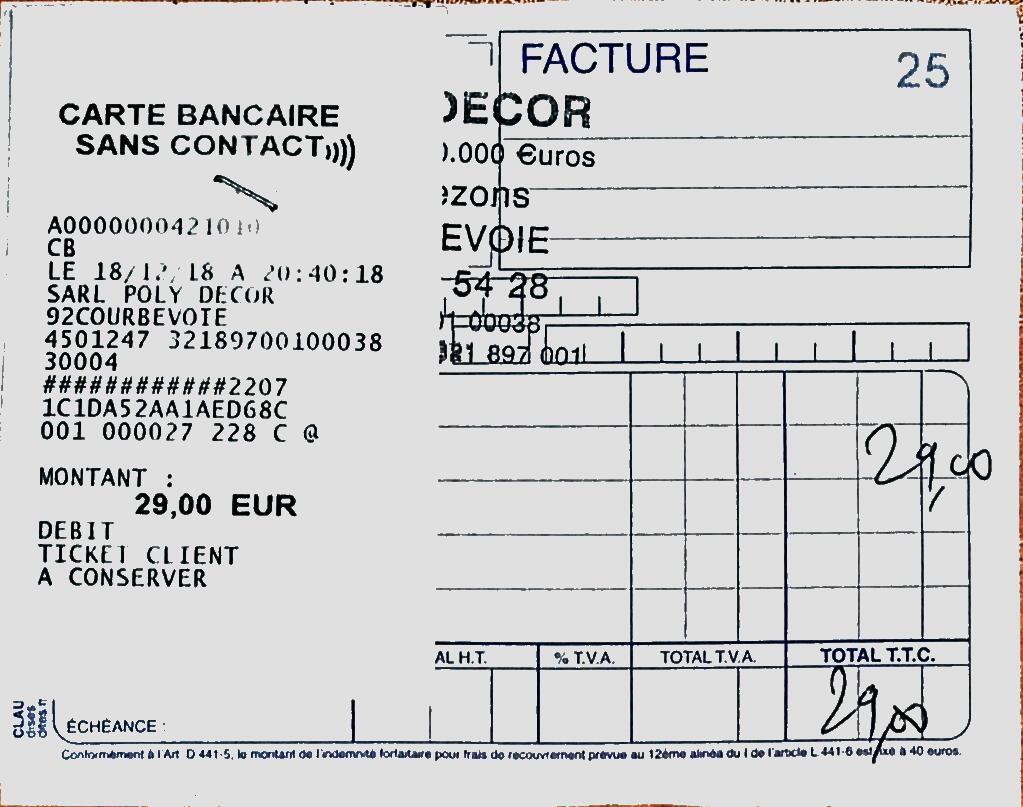 CARTE BANCAIRE
SANS CONTACT
A0000000421010
CB
LE 18/12/18 A 20:40:18
SARL POLY DECOR
92COURBEVOIE
4501247 32189700100038
30004
############2207
1C1DA52AA1AED68C
001 000027 228 C @
MONTANT :
29,00 EUR
DEBIT
TICKET CLIENT
A CONSERVER
FACTURE
25
DECOR
0.000 €uros
ezons
EVOIE
54 28
00038
897 001
29,00
AL H.T. % T.V.A. TOTAL T.V.A. TOTAL T.T.C.
29,00
ÉCHÉANCE :
Conformément à l'Art D 441-5, le montant de l'indemnité forfaitaire pour frais de recouvrement prévue au 12ème alinéa du I de l'article L 441-6 est fixé à 40 euros.